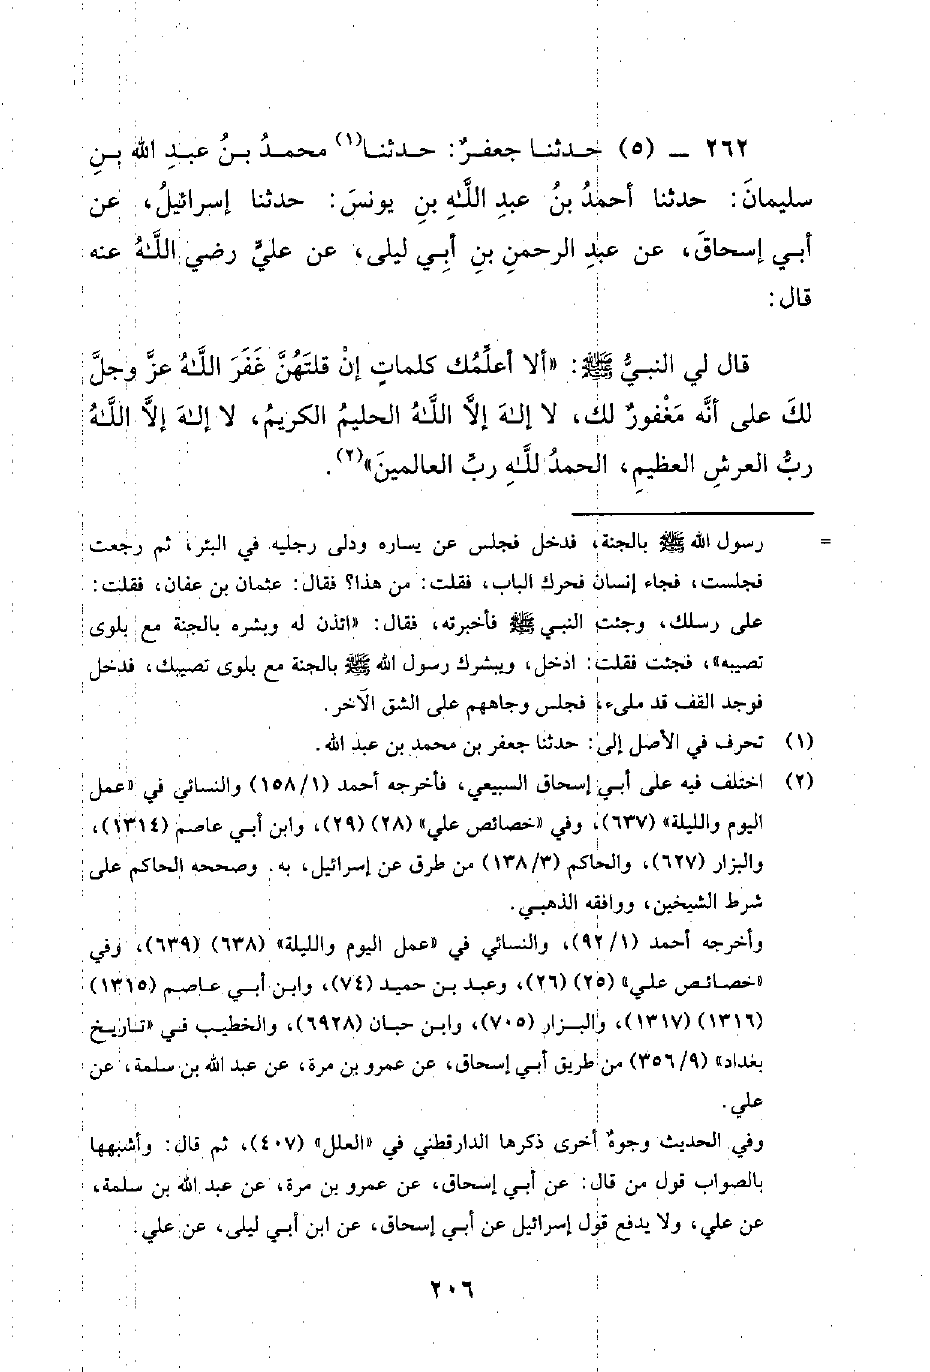 ٢٦٢ ــ (٥) حدثنـا جعفـرٌ: حـدثنـا(١) محمـدُ بـنُ عبـدِ الله بـنِ
سليمانَ: حدثنا أحمدُ بنُ عبدِ اللَّهِ بنِ يونسَ: حدثنا إسرائيلُ، عن
أبي إسحاقَ، عن عبدِ الرحمنِ بنِ أَبِي ليلى، عن عليٍّ رضي اللَّهُ عنه
قال:
قال لي النبيُّ ﷺ: «ألا أعلِّمُك كلماتٍ إنْ قلتَهُنَّ غَفَرَ اللَّهُ عزَّ وجلَّ
لكَ على أنَّه مَغْفورٌ لك، لا إلهَ إلاَّ اللَّهُ الحليمُ الكريمُ، لا إلهَ إلاَّ اللَّهُ
ربُّ العرشِ العظيمِ، الحمدُ للَّهِ ربِّ العالمينَ»(٢).
= رسول الله ﷺ بالجنة، فدخل فجلس عن يساره ودلى رجليه في البئر، ثم رجعت
فجلست، فجاء إنسان فحرك الباب، فقلت: من هذا؟ فقال: عثمان بن عفان، فقلت:
على رسلك، وجئت النبي ﷺ فأخبرته، فقال: «ائذن له وبشره بالجنة مع بلوى
تصيبه»، فجئت فقلت: ادخل، ويبشرك رسول الله ﷺ بالجنة مع بلوى تصيبك، فدخل
فوجد القف قد ملىء، فجلس وجاههم على الشق الآخر.
(١) تحرف في الأصل إلى: حدثنا جعفر بن محمد بن عبد الله.
(٢) اختلف فيه على أبي إسحاق السبيعي، فأخرجه أحمد (١/١٥٨) والنسائي في «عمل
اليوم والليلة» (٦٣٧)، وفي «خصائص علي» (٢٨) (٢٩)، وابن أبي عاصم (١٣١٤)،
والبزار (٦٢٧)، والحاكم (٣/١٣٨) من طرق عن إسرائيل، به. وصححه الحاكم على
شرط الشيخين، ووافقه الذهبي.
وأخرجه أحمد (١/٩٢)، والنسائي في «عمل اليوم والليلة» (٦٣٨) (٦٣٩)، وفي
«خصائص علي» (٢٥) (٢٦)، وعبد بن حميد (٧٤)، وابن أبي عاصم (١٣١٥)
(١٣١٦) (١٣١٧)، والبزار (٧٠٥)، وابن حبان (٦٩٢٨)، والخطيب في «تاريخ
بغداد» (٩/٣٥٦) من طريق أبي إسحاق، عن عمرو بن مرة، عن عبد الله بن سلمة، عن
علي.
وفي الحديث وجوهٌ أخرى ذكرها الدارقطني في «العلل» (٤٠٧)، ثم قال: وأشبهها
بالصواب قول من قال: عن أبي إسحاق، عن عمرو بن مرة، عن عبد الله بن سلمة،
عن علي، ولا يدفع قول إسرائيل عن أبي إسحاق، عن ابن أبي ليلى، عن علي.
٢٠٦